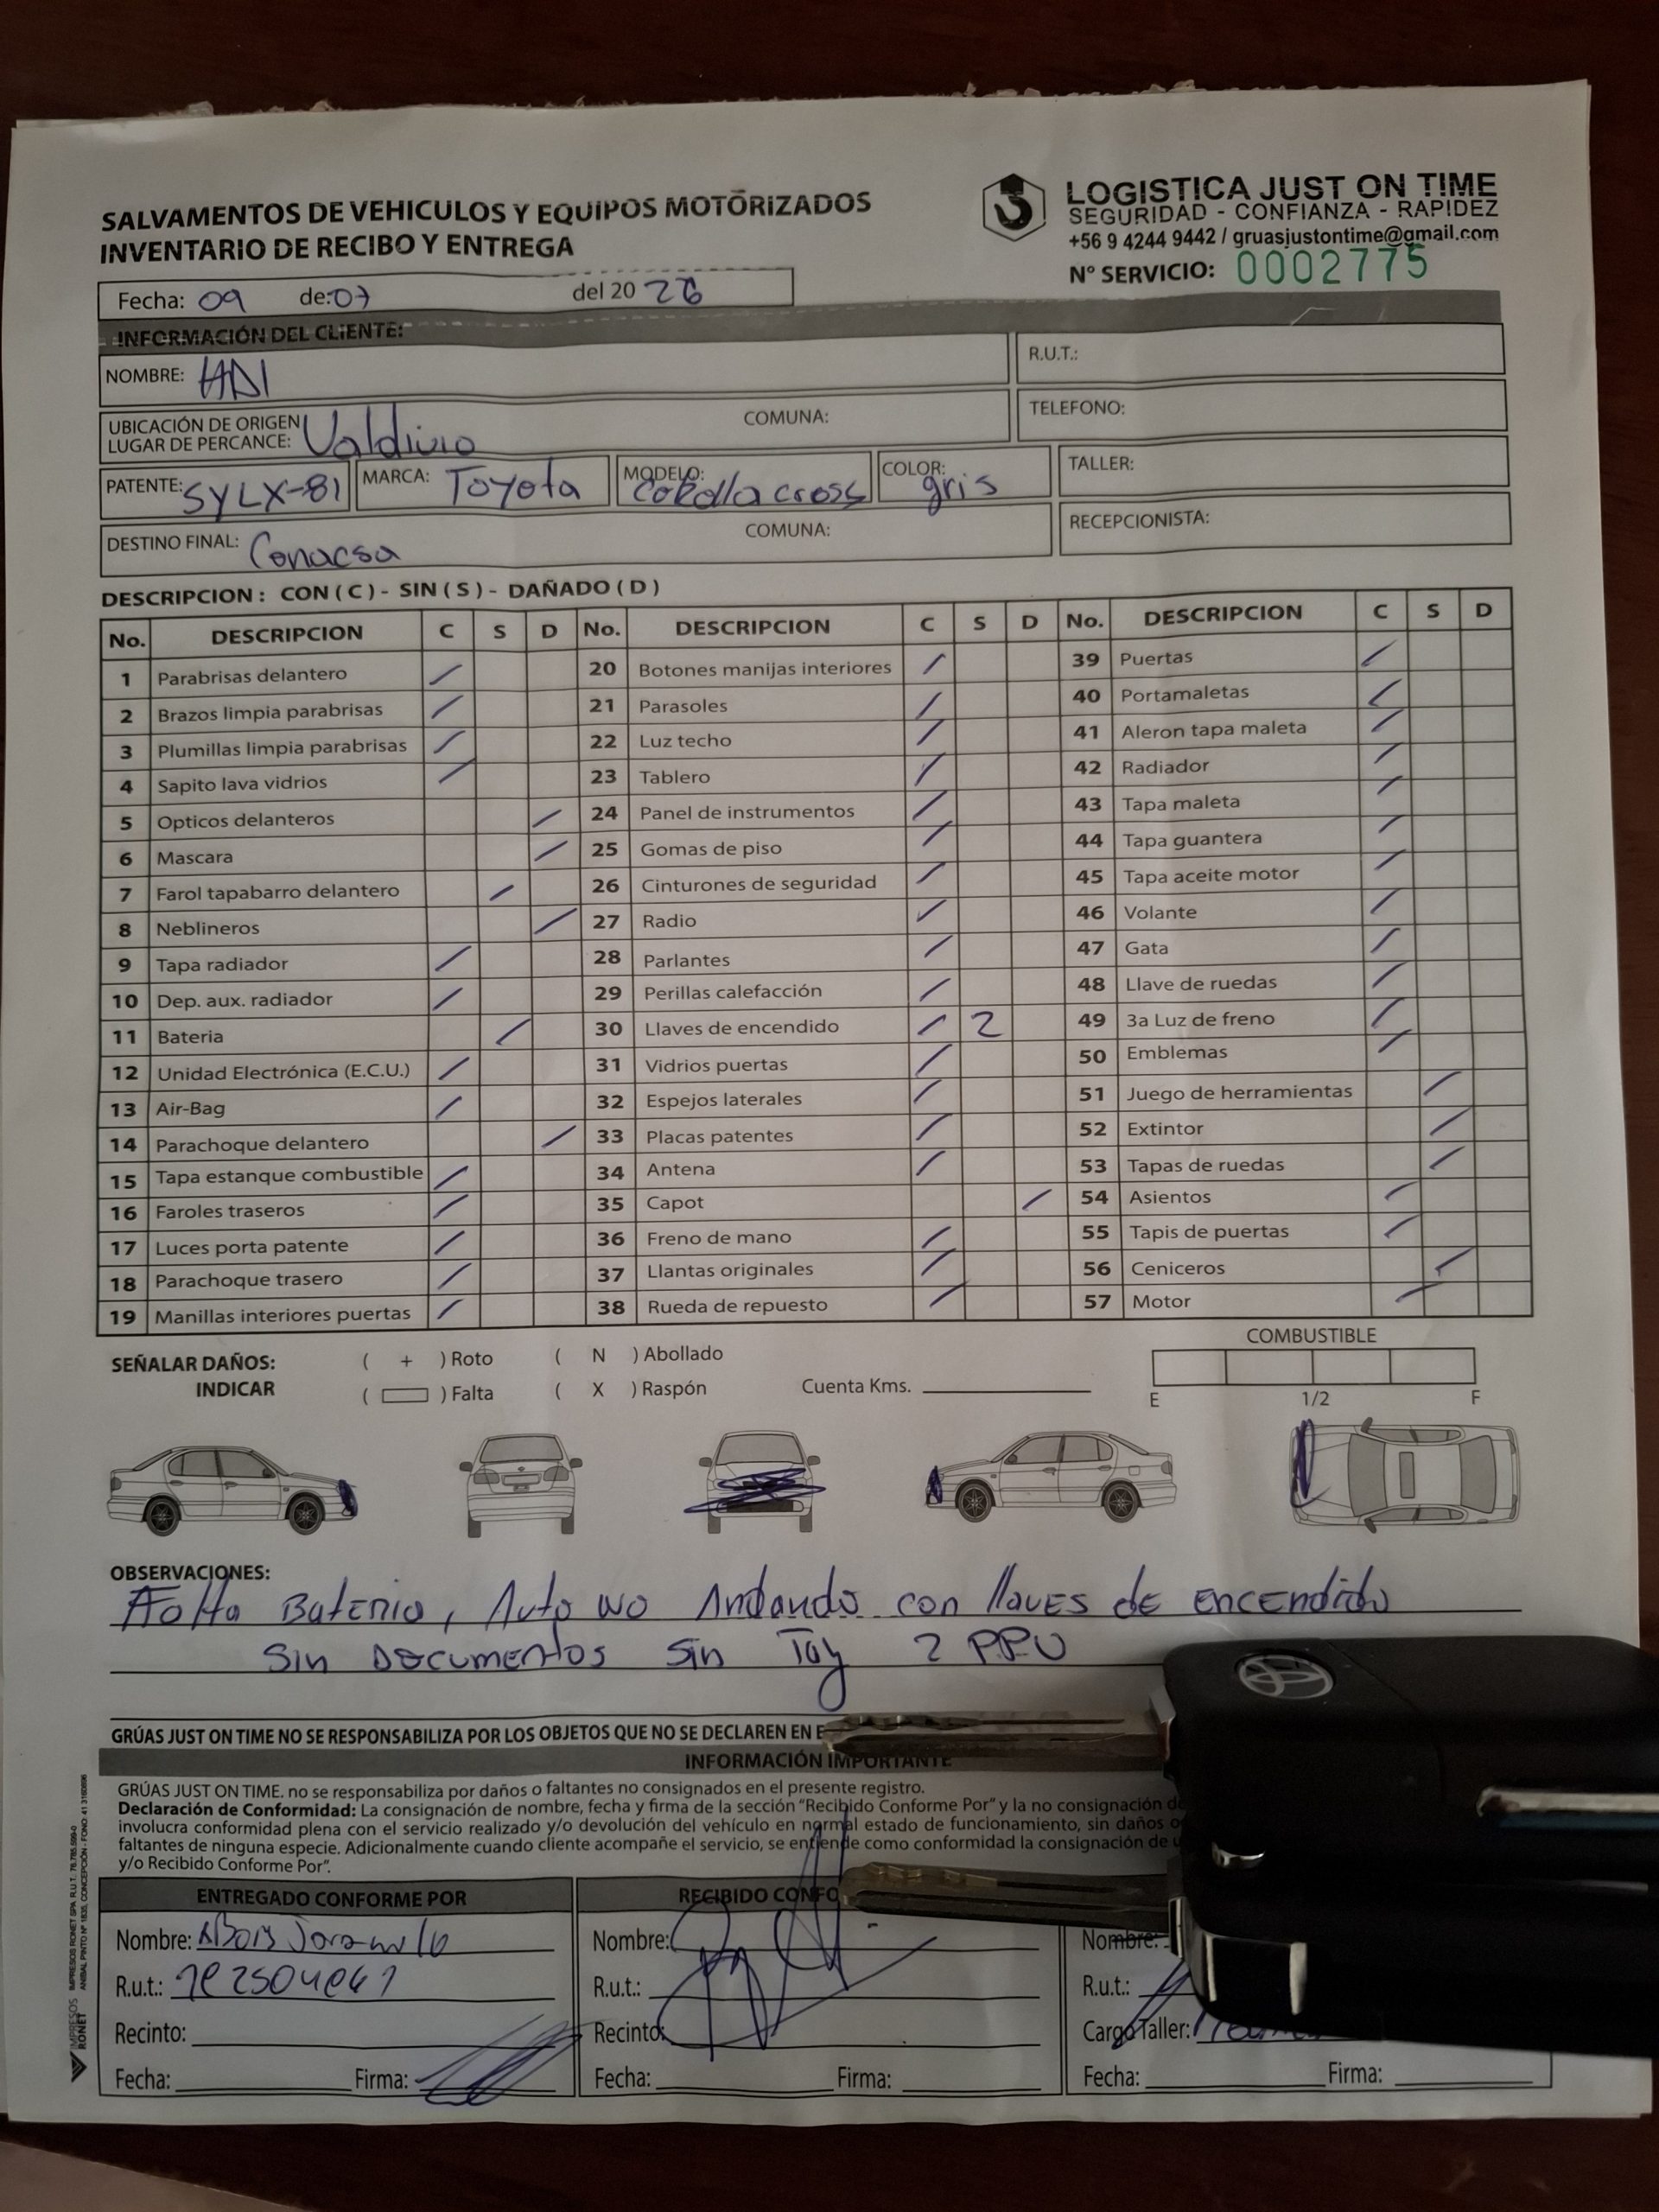 SALVAMENTOS DE VEHICULOS Y EQUIPOS MOTORIZADOS
INVENTARIO DE RECIBO Y ENTREGA
LOGISTICA JUST ON TIME
SEGURIDAD - CONFIANZA - RAPIDEZ
+56 9 4244 9442 / gruasjustontime@gmail.com
N° SERVICIO: 0002775
Fecha: 09 de: 07 del 20 26
INFORMACIÓN DEL CLIENTE:
NOMBRE: HDI
R.U.T.:
UBICACIÓN DE ORIGEN
LUGAR DE PERCANCE: Valdivia COMUNA:
TELEFONO:
PATENTE: SYLX-81 MARCA: Toyota MODELO: Corolla cross COLOR: gris
TALLER:
DESTINO FINAL: Conacsa COMUNA:
RECEPCIONISTA:
DESCRIPCION : CON ( C ) - SIN ( S ) - DAÑADO ( D )
No. DESCRIPCION C S D No. DESCRIPCION C S D No. DESCRIPCION C S D
1 Parabrisas delantero 20 Botones manijas interiores 39 Puertas
2 Brazos limpia parabrisas 21 Parasoles 40 Portamaletas
3 Plumillas limpia parabrisas 22 Luz techo 41 Aleron tapa maleta
4 Sapito lava vidrios 23 Tablero 42 Radiador
5 Opticos delanteros 24 Panel de instrumentos 43 Tapa maleta
6 Mascara 25 Gomas de piso 44 Tapa guantera
7 Farol tapabarro delantero 26 Cinturones de seguridad 45 Tapa aceite motor
8 Neblineros 27 Radio 46 Volante
9 Tapa radiador 28 Parlantes 47 Gata
10 Dep. aux. radiador 29 Perillas calefacción 48 Llave de ruedas
11 Bateria 30 Llaves de encendido 2 49 3a Luz de freno
12 Unidad Electrónica (E.C.U.) 31 Vidrios puertas 50 Emblemas
13 Air-Bag 32 Espejos laterales 51 Juego de herramientas
14 Parachoque delantero 33 Placas patentes 52 Extintor
15 Tapa estanque combustible 34 Antena 53 Tapas de ruedas
16 Faroles traseros 35 Capot 54 Asientos
17 Luces porta patente 36 Freno de mano 55 Tapis de puertas
18 Parachoque trasero 37 Llantas originales 56 Ceniceros
19 Manillas interiores puertas 38 Rueda de repuesto 57 Motor
SEÑALAR DAÑOS: ( + ) Roto ( N ) Abollado
INDICAR ( ) Falta ( X ) Raspón Cuenta Kms.
COMBUSTIBLE
E 1/2 F
OBSERVACIONES:
Falta Bateria, Auto no Andando con llaves de encendido
Sin Documentos Sin Tag 2 PPU
GRÚAS JUST ON TIME NO SE RESPONSABILIZA POR LOS OBJETOS QUE NO SE DECLAREN EN
INFORMACIÓN IMPORTANTE
GRÚAS JUST ON TIME. no se responsabiliza por daños o faltantes no consignados en el presente registro.
Declaración de Conformidad: La consignación de nombre, fecha y firma de la sección "Recibido Conforme Por" y la no consignación
involucra conformidad plena con el servicio realizado y/o devolución del vehículo en normal estado de funcionamiento, sin daños
faltantes de ninguna especie. Adicionalmente cuando cliente acompañe el servicio, se entiende como conformidad la consignación de
y/o Recibido Conforme Por".
ENTREGADO CONFORME POR
Nombre: Jaramillo
R.u.t.:
Recinto:
Fecha: Firma:
RECIBIDO
Nombre:
R.u.t.:
Recinto:
Fecha: Firma:
Nombre:
R.u.t.:
Cargo Taller:
Fecha: Firma:
IMPRESOS
RONET